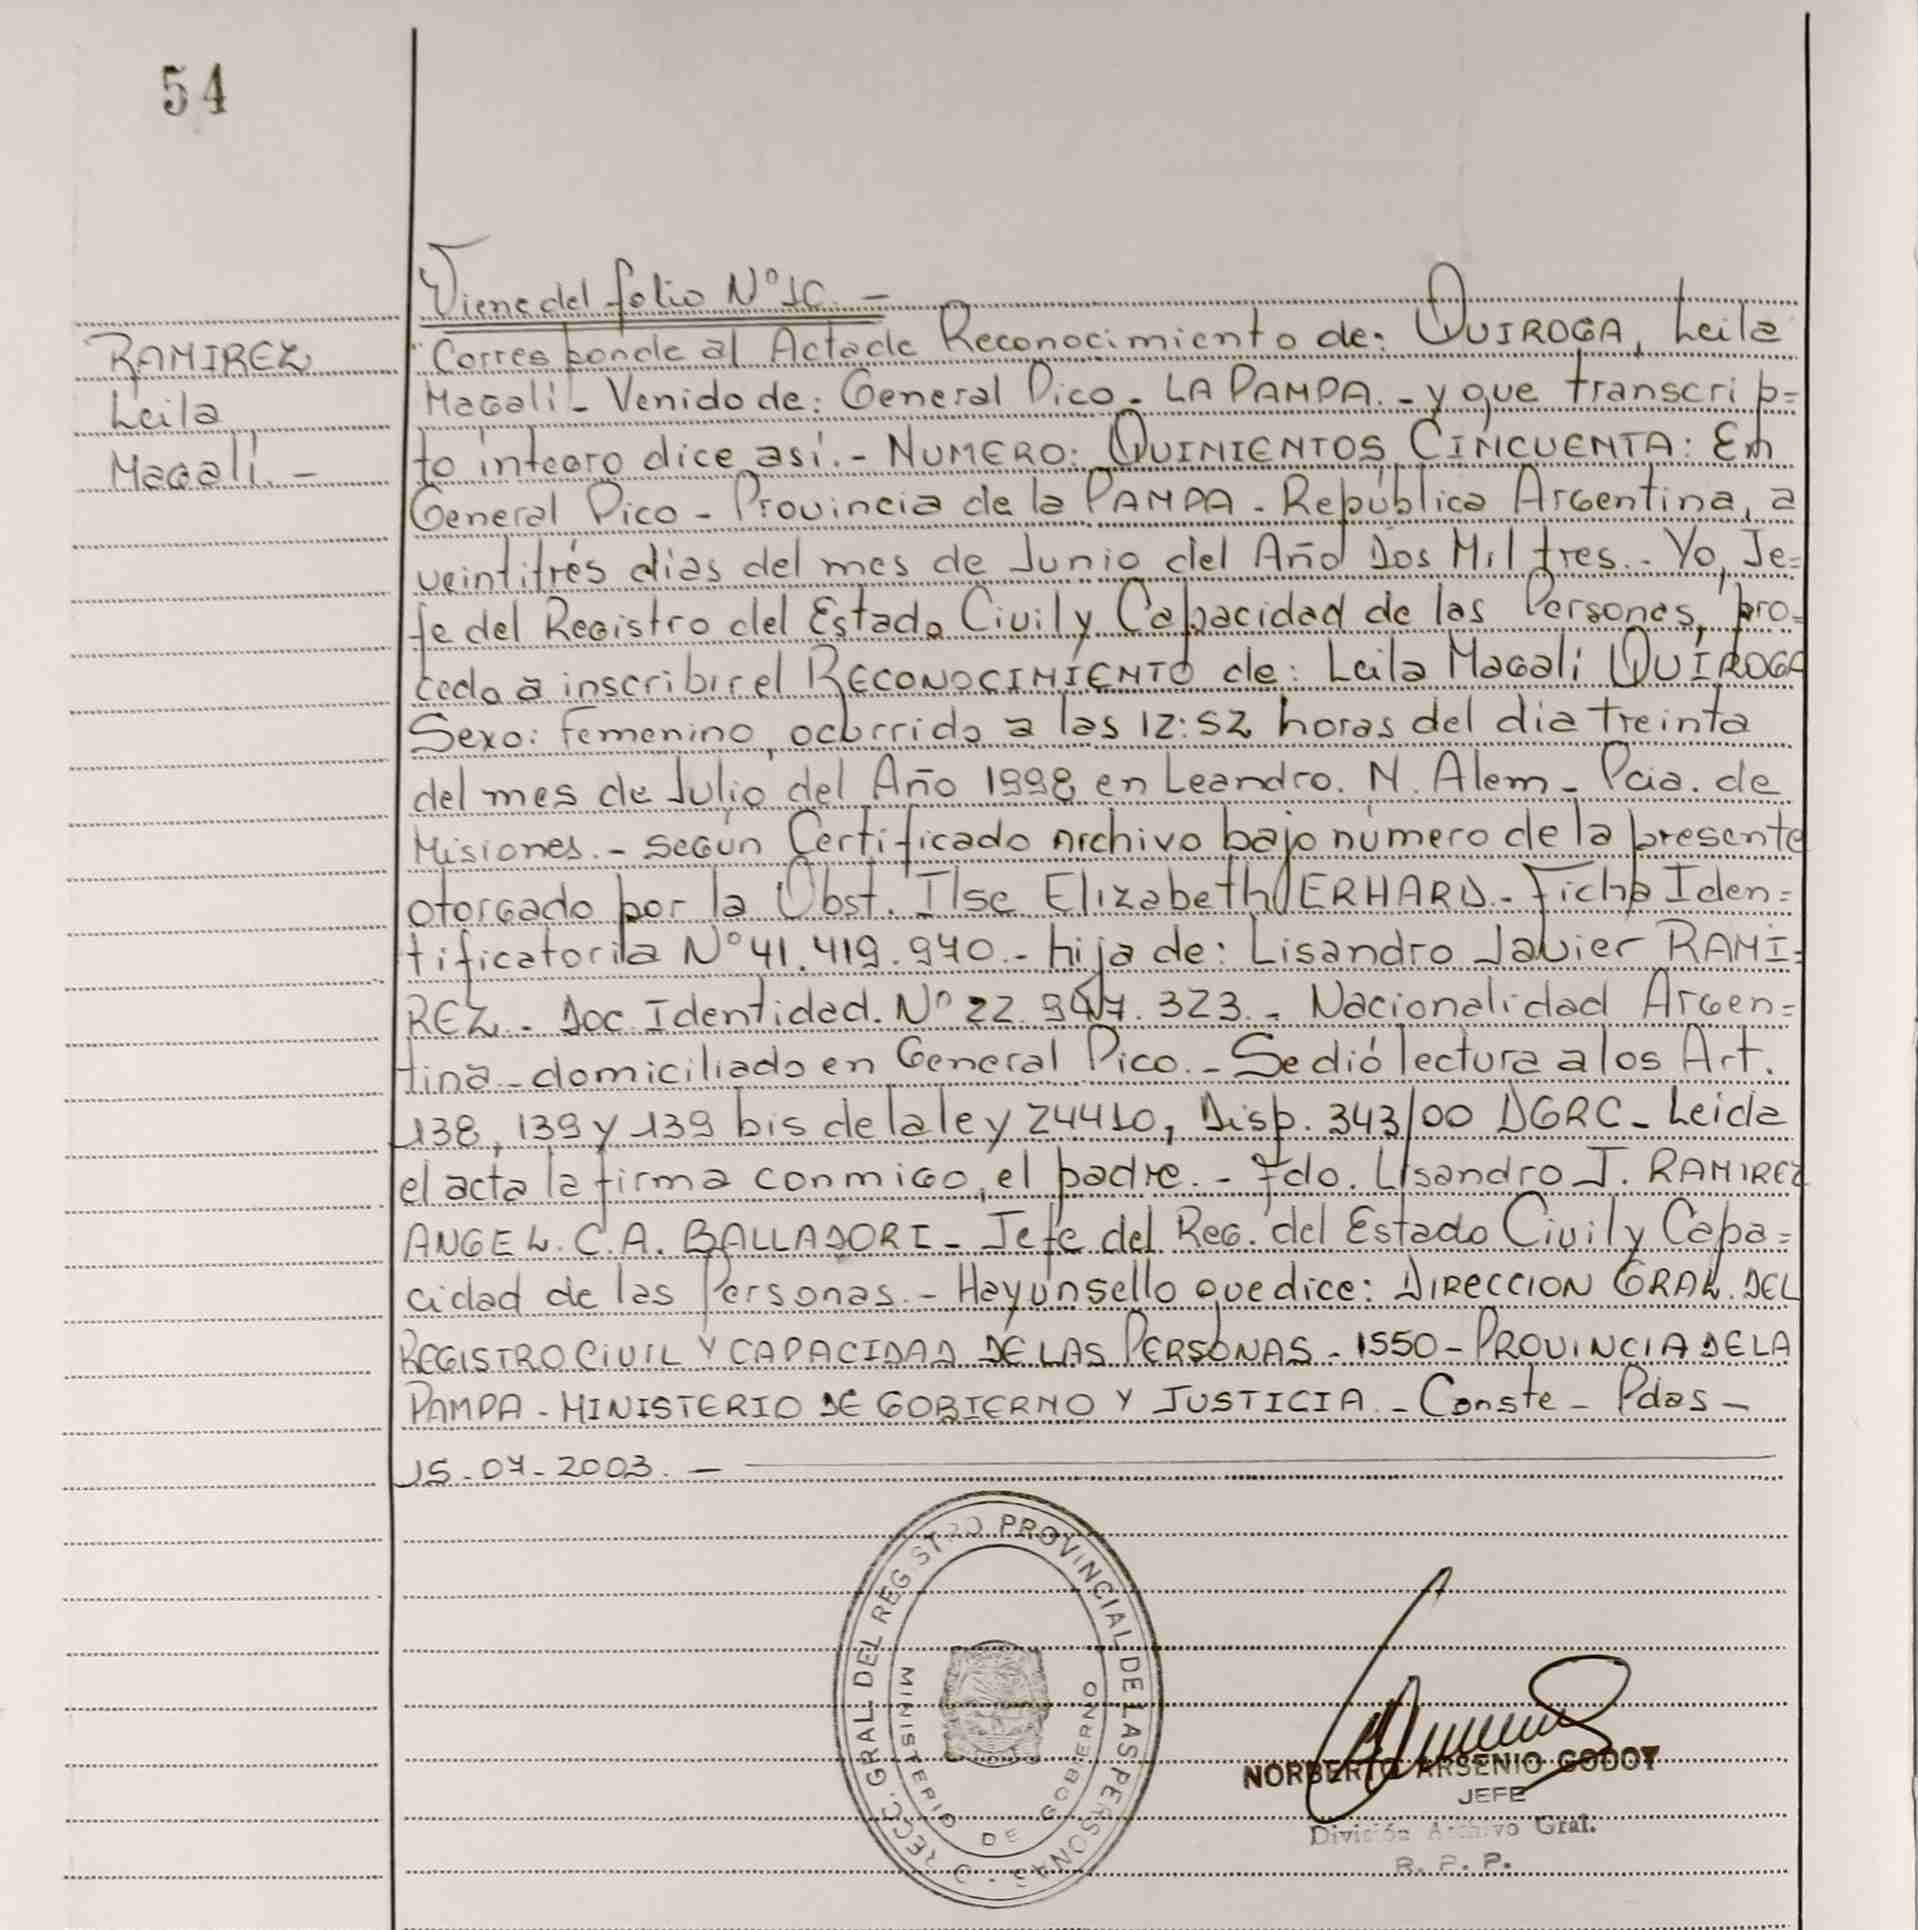 54
Viene del folio Nº
RAMIREZ
Leila
Magalí. -
Corresponde al Acta de Reconocimiento de: QUIROGA, Leila
Magalí - Venido de: General Pico - LA PAMPA. - y que transcrip=
to íntegro dice así. - NUMERO: QUINIENTOS CINCUENTA: En
General Pico - Provincia de la PAMPA - República Argentina, a
veintitrés días del mes de Junio del Año Dos Mil tres. - Yo, Je=
fe del Registro del Estado Civil y Capacidad de las Personas, pro=
cedo a inscribir el RECONOCIMIENTO de: Leila Magalí QUIROGA
Sexo: Femenino, ocurrido a las 12:52 horas del día treinta
del mes de Julio del Año 1998 en Leandro. N. Alem - Pcia. de
Misiones. - Según Certificado Archivo bajo número de la presente
otorgado por la Obst. Ilse Elizabeth ERHARD. - Ficha Iden=
tificatoria Nº 41.419.970. - hija de: Lisandro Javier RAMI=
REZ - Doc Identidad. Nº 22. 323. - Nacionalidad Argen=
tina - domiciliado en General Pico. - Se dió lectura a los Art.
138, 139 y 139 bis de la ley 24410, Disp. 343/00 DGRC - Leida
el acta la firma conmigo, el padre. - Fdo. Lisandro J. RAMIREZ
ANGEL. C. A. BALLADORI - Jefe del Reg. del Estado Civil y Capa=
cidad de las Personas. - Hay un sello que dice: DIRECCION GRAL. DEL
REGISTRO CIVIL Y CAPACIDAD DE LAS PERSONAS - 1550 - PROVINCIA DE LA
PAMPA - MINISTERIO DE GOBIERNO Y JUSTICIA. - Conste - Pdas -
15-07-2003. -
DIRECC. GRAL. DEL REGISTRO PROVINCIAL DE LAS PERSONAS
MINISTERIO DE GOBIERNO
NORBERTO ARSENIO GODOY
JEFE
División Archivo Gral.
R. P. P.